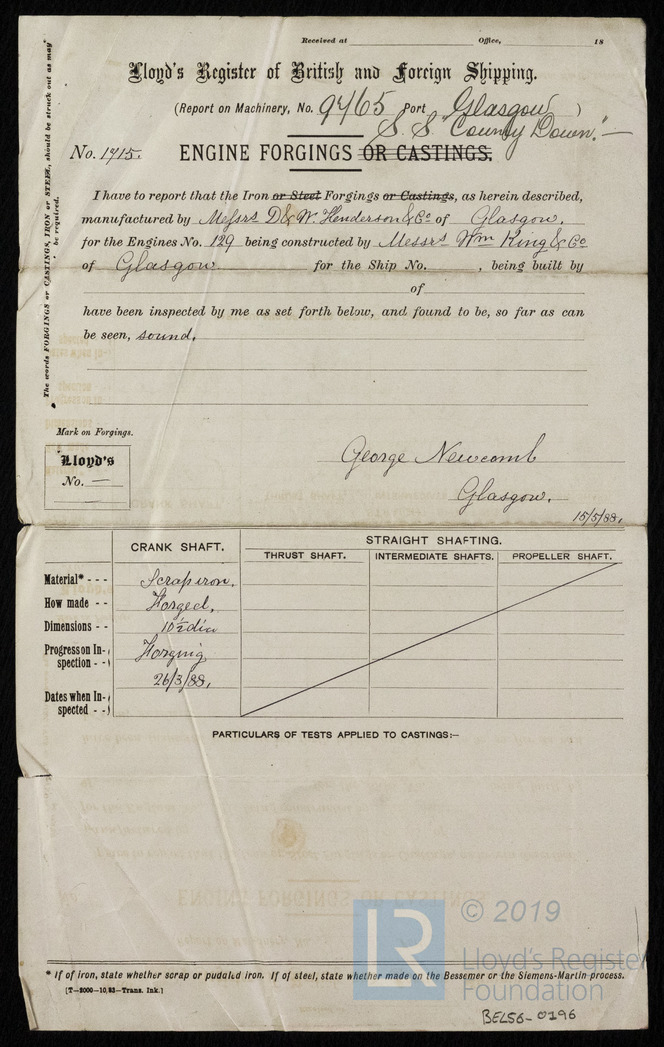 Received at Office, 18
Lloyd's Register of British and Foreign Shipping.
(Report on Machinery, No. 9465 Port Glasgow )
S.S. "County Down."—
No. 1915. ENGINE FORGINGS OR CASTINGS.
I have to report that the Iron or Steel Forgings or Castings, as herein described,
manufactured by Messrs D & W. Henderson & Co of Glasgow.
for the Engines No. 129 being constructed by Messrs Wm King & Co
of Glasgow for the Ship No. , being built by
of
have been inspected by me as set forth below, and found to be, so far as can
be seen, sound.
The words FORGINGS or CASTINGS, IRON or STEEL, should be struck out as may
be required.
Mark on Forgings.
Lloyd's
No. —
George Newcomb
Glasgow.
15/5/88.
CRANK SHAFT. STRAIGHT SHAFTING.
THRUST SHAFT. INTERMEDIATE SHAFTS. PROPELLER SHAFT.
Material* - - - Scrap iron.
How made - - Forged.
Dimensions - - 10½ dia
Progress on In-
spection - - Forging
26/3/88.
Dates when In-
spected - -
PARTICULARS OF TESTS APPLIED TO CASTINGS:—
* If of iron, state whether scrap or puddled iron. If of steel, state whether made on the Bessemer or the Siemens-Martin process.
[T—2000—10,83—Trans. Ink.]
LR
© 2019
Lloyd's Register
Foundation
BEL56-0196